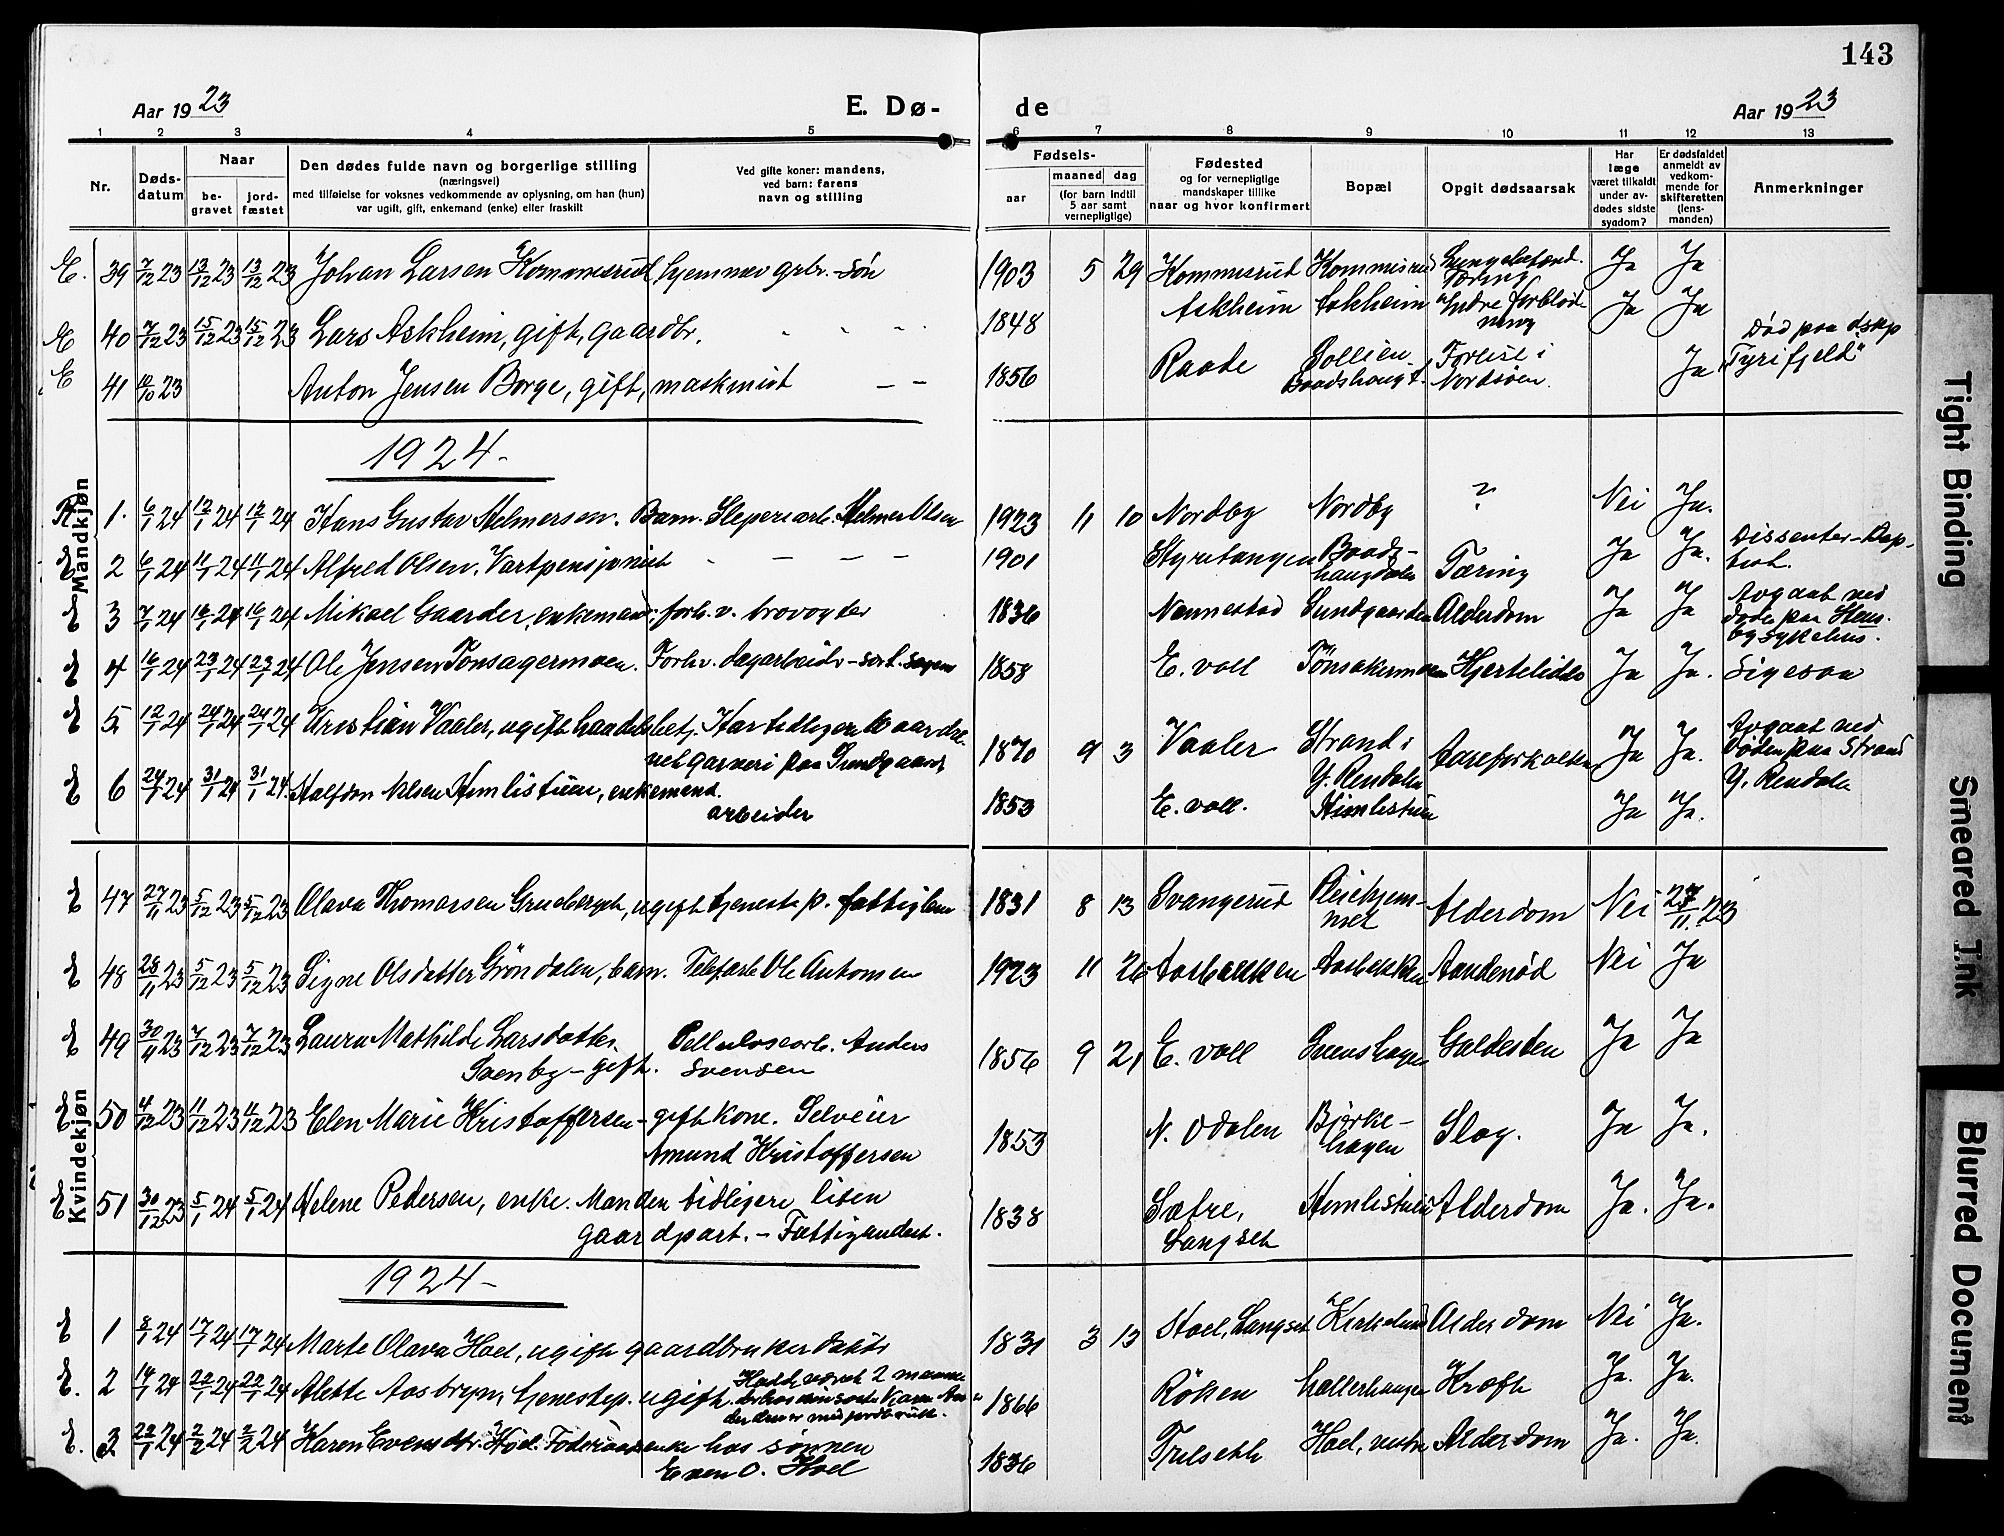 143
Aar 1923 E. Dø- de Aar 1923
1 2 3 4 5 6 7 8 9 10 11 12 13
Nr. Døds-datum Naar be-gravet jord-fæstet
Den dødes fulde navn og borgerlige stilling
(næringsvei)
med tilføielse for voksnes vedkommende av oplysning, om han (hun)
var ugift, gift, enkemand (enke) eller fraskilt
Ved gifte koner: mandens,
ved barn: farens
navn og stilling
Fødsels-
aar maaned dag
(for barn indtil
5 aar samt
vernepligtige)
Fødested
og for vernepligtige
mandskaper tillike
naar og hvor konfirmert
Bopæl
Opgit dødsaarsak
Har
læge
været tilkaldt
under av-
dødes sidste
sygdom?
Er dødsfaldet
anmeldt av
vedkom-
mende for
skifteretten
(lens-
manden)
Anmerkninger
Mandkjøn
E. 39 7/12 23 13/12 23 13/12 23 Johan Larsen Kommisrud hjemmev. grbr. søn 1903 5 29 Kommisrud Kommisrud Tæring Ja Ja
E 40 7/12 23 15/12 23 15/12 23 Lars Askheim, gift, gaardbr. 1848 Askheim Askheim Indre forblød-
ning Ja Ja
E 41 10/10 23 Anton Jensen Borge, gift, maskinist - - 1856 Raade Sollien
Baadshaugt. Forlist i
Nordsøen. Ja Død paa dskp
"Tyrifjeld"
1924 -
1. 6/1 24 12/1 24 12/1 24 Hans Gustav Helmersen. Barn. Sliperiarb. Helmer Olsen 1923 11 10 Nordby Nordby ? Nei Ja.
E 2 6/1 24 11/1 24 11/1 24 Alfred Olsen. Vartpensjonist - - - - 1901 Styritangen Baads-
haugdalen Tæring Ja Ja. Dissenter - Bap-
tist.
E 3 7/1 24 16/1 24 16/1 24 Mikael Gaarder, enkemand, forh. v. brovogter 1836 Nannestad Sundgaarden Alderdom Ja Ja Avgaat ved
døde paa Stens-
by sykehus.
E 4 16/1 24 23/1 24 23/1 24 Ole Jensen Tønsagermoen. Forhv. dagarbeid 1858 E. voll Tønsakermoen Hjertelidelse Ja Ja.
E 5 12/1 24 24/1 24 24/1 24 Kristian Vaaler, ugift handelsbetj. Har tidligere 10 aar dre-
vet garveri paa Sundgaard 1870 9 3 Vaaler Strand i
Y. Rendalen Aareforkalkn. Ja Ja. Avgaat ved
Døden paa Strand
Y. Rendalen
E 6 24/1 24 31/1 24 31/1 24. Halfdan Nilsen Himlistuen, enkemand.
arbeider 1853 E. voll. Himlistuen Ja Ja.
Kvindekjøn
E 47 27/11 23 5/12 23 5/12 23 Olava Thomassen Grueberget, ugift tjenestp. fattiglem 1831 8 13 Svangerud Pleiehjem-
met Alderdom Nei 27/11 23
E 48 28/11 23 5/12 23 5/12 23 Signe Olsdatter Grøndalen, barn. Telefarb Ole Antonsen 1923 11 26 Aasbakken Aasbakken Aandenød Nei Ja
E 49 30/11 23 7/12 23 7/12 23 Laura Mathilde Larsdatter
Svenby - gift. Cellulosearb. Anders
Svensen 1856 9 21 E. voll Svenshagen Galdesten Ja Ja
E 50 4/12 23 11/12 23 11/12 23 Elen Marie Kristoffersen - gift kone. Selveier
Amund Kristoffersen 1853 N. Odalen Bjørke-
hagen Slag. Ja Ja.
E 51 30/12 23 5/1 24 5/1 24 Helene Pedersen, enke. Manden tidligere liten
gaardpart. - Fattigunderst. 1838 Sætre,
Langset Himlistuen Alderdom Ja. Ja.
1924 -
E 1 8/1 24 17/1 24 17/1 24 Marte Olava Hoel, ugift gaardbruker datter 1831 3 13 Hoel, Langset Kirkelund Alderdom Nei Ja.
E. 2 14/1 24 22/1 24 22/1 24 Alette Aasbryn, tjenestep. ugift. 1866 Røken Hallerhaugen Kræft Ja. Ja.
E. 3 22/1 24 2/2 24 2/2 24 Karen Evensdtr. Hoel. Føderaadsenke hos sønnen
Even O. Hoel 1836 Trulsekk Hoel, vestre Alderdom Ja. Ja.
Tight Binding
Smeared Ink
Blurred Document